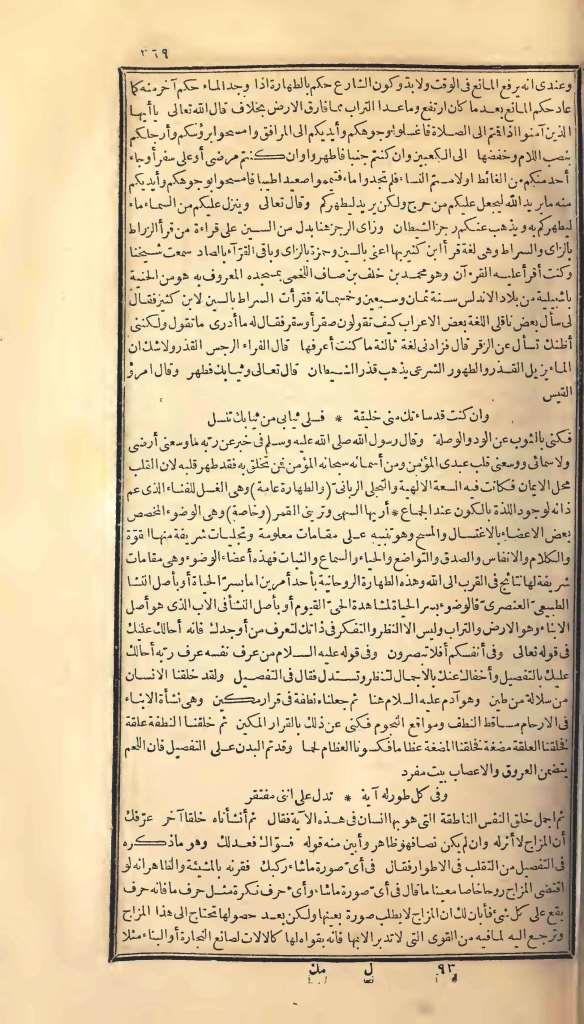 ٣٦٩
وعندى انه يرفع المانع فى الوقت ولا بد وكون الشارع حكم بالطهارة اذا وجد الماء حكم آخر منه كما
عاد حكم المانع بعد ما كان ارتفع وما عدا التراب مما فارق الارض بخلاف قال الله تعالى يا أيها
الذين آمنوا اذا قتم الى الصلاة فاغسلوا وجوهكم وأيديكم الى المرافق وامسحوا برؤسكم وأرجلكم
بنصب اللام وخفضها الى الكعبين وان كنتم جنبا فاطهروا وان كنتم مرضى أو على سفر أو جاء
أحد منكم من الغائط اولامستم النساء فلم تجدوا ماء فتيمموا صعيدا طيبا فامسحوا بوجوهكم وأيديكم
منه ما يريد الله ليجعل عليكم من حرج ولكن يريد ليطهركم وقال تعالى وينزل عليكم من السماء ماء
ليطهركم به ويذهب عنكم رجز الشيطان وزاى الرجز هنا بدل من السين على قراءة من قرأ الزراط
بالزاى والسراط وهى لغة قرأ ابن كثير بها اعنى بالسين وحمزة بالزاى وباقى القرّاء بالصاد سمعت شيخنا
وكنت أقرأ عليه القرءآن وهو محمد بن خلف بن صاف اللخمى بمسجده المعروف به هو من الحنية
باشبيلية من بلاد الاندلس سنة ثمان وسبعين وخمسمائة فقرأت السراط بالسين لابن كثير فقال
لى سأل بعض ناقلى اللغة بعض الاعراب كيف تقولون صقر أو سقر فقال له ما أدرى ما تقول ولكننى
أظنك تسأل عن الزقر قال فزادنى لغة ثالثة ما كنت أعرفها قال الفراء الرجس القذر ولا شك ان
الماء يزيل القذر والطهور الشرعى يذهب قذر الشيطان قال تعالى وثيابك فطهر وقال امرؤ
القيس
وان كنت قد ساءتك منى خليقة * فسلى ثيابى من ثيابك تنسل
فكنى بالثوب عن الود والوصلة وقال رسول الله صلى الله عليه وسلم فى خبر عن ربه ما وسعنى أرضى
ولا سمائى ووسعنى قلب عبدى المؤمن ومن أسمائه سبحانه المؤمن فمن تخلق به فقد طهر قلبه لان القلب
محل الايمان فكانت فيه السعة الالهية والتجلى الربانى (والطهارة عامة) وهى الغسل للفناء الذى عم
ذاته لوجود اللذة بالكون عند الجماع * أريها السهى وترينى القمر (وخاصة) وهى الوضوء المخصص
بعض الاعضاء بالاغتسال والمسح وهو تنبيه على مقامات معلومة وتجليات شريفة منها القوّة
والكلام والانفاس والصدق والتواضع والحياء والسماع والثبات فهذه أعضاء الوضوء وهى مقامات
شريفة لها نتائج فى القرب الى الله وهذه الطهارة الروحانية بأحد أمرين اما بسرّ الحياة أو بأصل النشأ
الطبيعى العنصرى فالوضوء بسر الحياة لمشاهدة الحىّ القيوم أو بأصل النشأ فى الاب الذى هو أصل
الابناء وهو الارض والتراب وليس الا النظر والتفكر فى ذاتك لتعرف من أوجدك فانه أحالك عليك
فى قوله تعالى وفى أنفسكم أفلا تبصرون وفى قوله عليه السلام من عرف نفسه عرف ربه أحالك
عليك بالتفصيل وأخفاك عنك بالاجمال لتنظر وتستدل فقال فى التفصيل ولقد خلقنا الانسان
من سلالة من طين وهو آدم عليه السلام هنا ثم جعلناه نطفة فى قرار مكين وهى نشأة الابناء
فى الارحام مساقط النطف ومواقع النجوم فكنى عن ذلك بالقرار المكين ثم خلقنا النطفة علقة
فخلقنا العلقة مضغة فخلقنا المضغة عظاما فكسونا العظام لحما وقد تم البدن على التفصيل فان اللحم
يتضمن العروق والاعصاب بيت مفرد
وفى كل طور له آية * تدل على اننى مفتقر
ثم اجمل خلق النفس الناطقة التى هو بها انسان فى هذه الآية فقال ثم أنشأناه خلقا آخر عرّفك
أن المزاج لا أثر له وان لم يكن نصا فهو ظاهر وأبين منه قوله فسوّاك فعدلك وهو ما ذكره
فى التفصيل من التقلب فى الاطوار فقال فى أىّ صورة ما شاء ركبك فقرنه بالمشيئة والظاهر انه لو
اقتضى المزاج روحا خاصا معينا ما قال فى أىّ صورة ما شاء وأىّ حرف نكرة مثل حرف ما فانه حرف
يقع على كل شئ فأبان لك ان المزاج لا يطلب صورة بعينها ولكن بعد حصولها تحتاج الى هذا المزاج
وترجع اليه لما فيه من القوى التى لا تدبر الا بها فانه بقواه لها كالآلات لصانع النجارة أو البناء مثلا
٩٣ ل مك